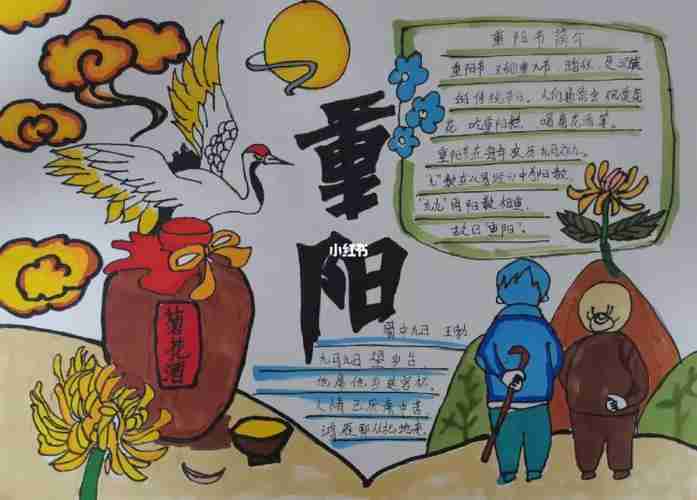 重阳节简介
重阳节,又称重九节、踏秋、是汉族
的传统节日。人们
花、吃重阳糕、喝菊花酒等。
重阳节在每年农历九月初九。
"九"数在《易经》中为阳数,
"九九"两阳数相重,
故曰"重阳"。
重阳
小红书
菊花酒
蜀中九日 王勃
九月九日望乡台,
他席他乡送客杯。
人情已厌南中苦,
鸿雁那从北地来。